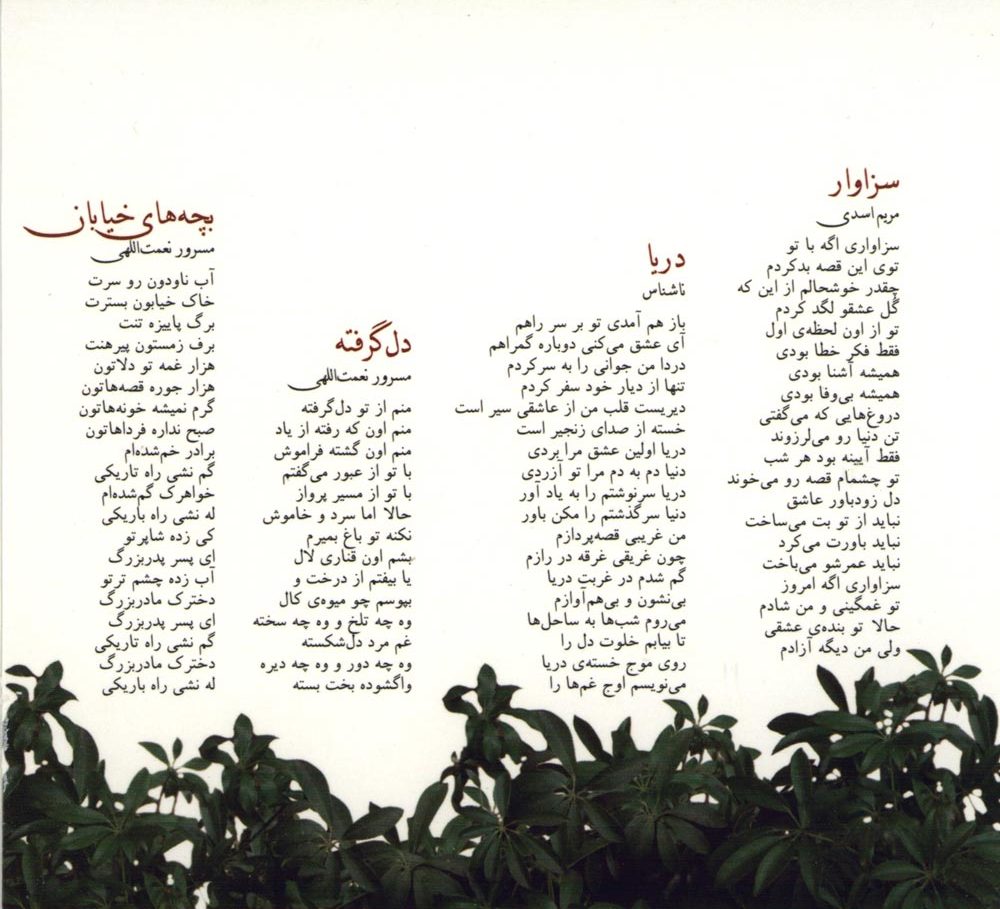 سزاوار
مریم اسدی
سزاواری اگه با تو
توی این قصه بدکردم
چقدر خوشحالم از این که
گُل عشقو لگد کردم
تو از اون لحظه‌ی اول
فقط فکر خطا بودی
همیشه آشنا بودی
همیشه بی‌وفا بودی
دروغ‌هایی که می‌گفتی
تن دنیا رو می‌لرزوند
فقط آیینه بود هر شب
تو چشمام قصه رو می‌خوند
دل زودباور عاشق
نباید از تو بت می‌ساخت
نباید باورت می‌کرد
نباید عمرشو می‌باخت
سزاواری اگه امروز
تو غمگینی و من شادم
حالا تو بنده‌ی عشقی
ولی من دیگه آزادم
دریا
ناشناس
باز هم آمدی تو بر سر راهم
آی عشق می‌کنی دوباره گمراهم
دردا من جوانی را به سرکردم
تنها از دیار خود سفر کردم
دیریست قلب من از عاشقی سیر است
خسته از صدای زنجیر است
دریا اولین عشق مرا بردی
دنیا دم به دم مرا تو آزردی
دریا سرنوشتم را به یاد آور
دنیا سرگذشتم را مکن باور
من غریبی قصه‌پردازم
چون غریقی غرقه در رازم
گم شدم در غربت دریا
بی‌نشون و بی‌هم‌آوازم
می‌روم شب‌ها به ساحل‌ها
تا بیابم خلوت دل را
روی موج خسته‌ی دریا
می‌نویسم اوج غم‌ها را
دل‌گرفته
مسرور نعمت‌اللهی
منم از تو دل‌گرفته
منم اون که رفته از یاد
منم اون گشته فراموش
با تو از عبور می‌گفتم
با تو از مسیر پرواز
حالا اما سرد و خاموش
نکنه تو باغ بمیرم
بشم اون قناری لال
یا بیفتم از درخت و
بپوسم چو میوه‌ی کال
وه چه تلخ و وه چه سخته
غم مرد دل‌شکسته
وه چه دور و وه چه دیره
واگشوده بخت بسته
بچه‌های خیابان
مسرور نعمت‌اللهی
آب ناودون رو سرت
خاک خیابون بسترت
برگ پاییزه تنت
برف زمستون پیرهنت
هزار غمه تو دلاتون
هزار جوره قصه‌هاتون
گرم نمیشه خونه‌هاتون
صبح نداره فرداهاتون
برادر خم‌شده‌ام
گم نشی راه تاریکی
خواهرک گم‌شده‌ام
له نشی راه باریکی
کی زده شاپرتو
ای پسر پدربزرگ
آب زده چشم ترتو
دخترک مادربزرگ
ای پسر پدربزرگ
گم نشی راه تاریکی
دخترک مادربزرگ
له نشی راه باریکی